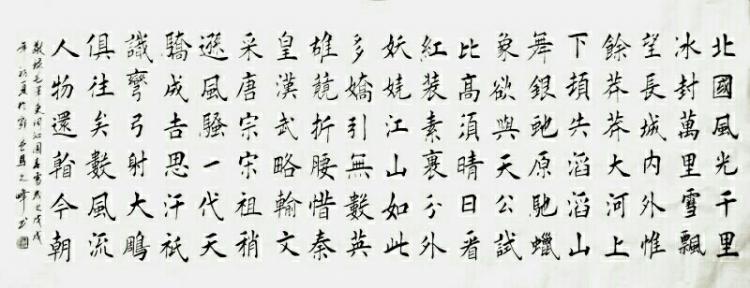 北國風光千里
冰封萬里雪飄
望長城內外惟
餘莽莽大河上
下頓失滔滔山
舞銀虵原馳蠟
象欲與天公試
比高須晴日看
紅裝素裹分外
妖嬈江山如此
多嬌引無數英
雄競折腰惜秦
皇漢武略輸文
采唐宗宋祖稍
遜風騷一代天
驕成吉思汗衹
識彎弓射大鵰
俱往矣數風流
人物還看今朝
敬錄毛澤東詞沁園春雪歲次戊戌
年初夏於之峰書